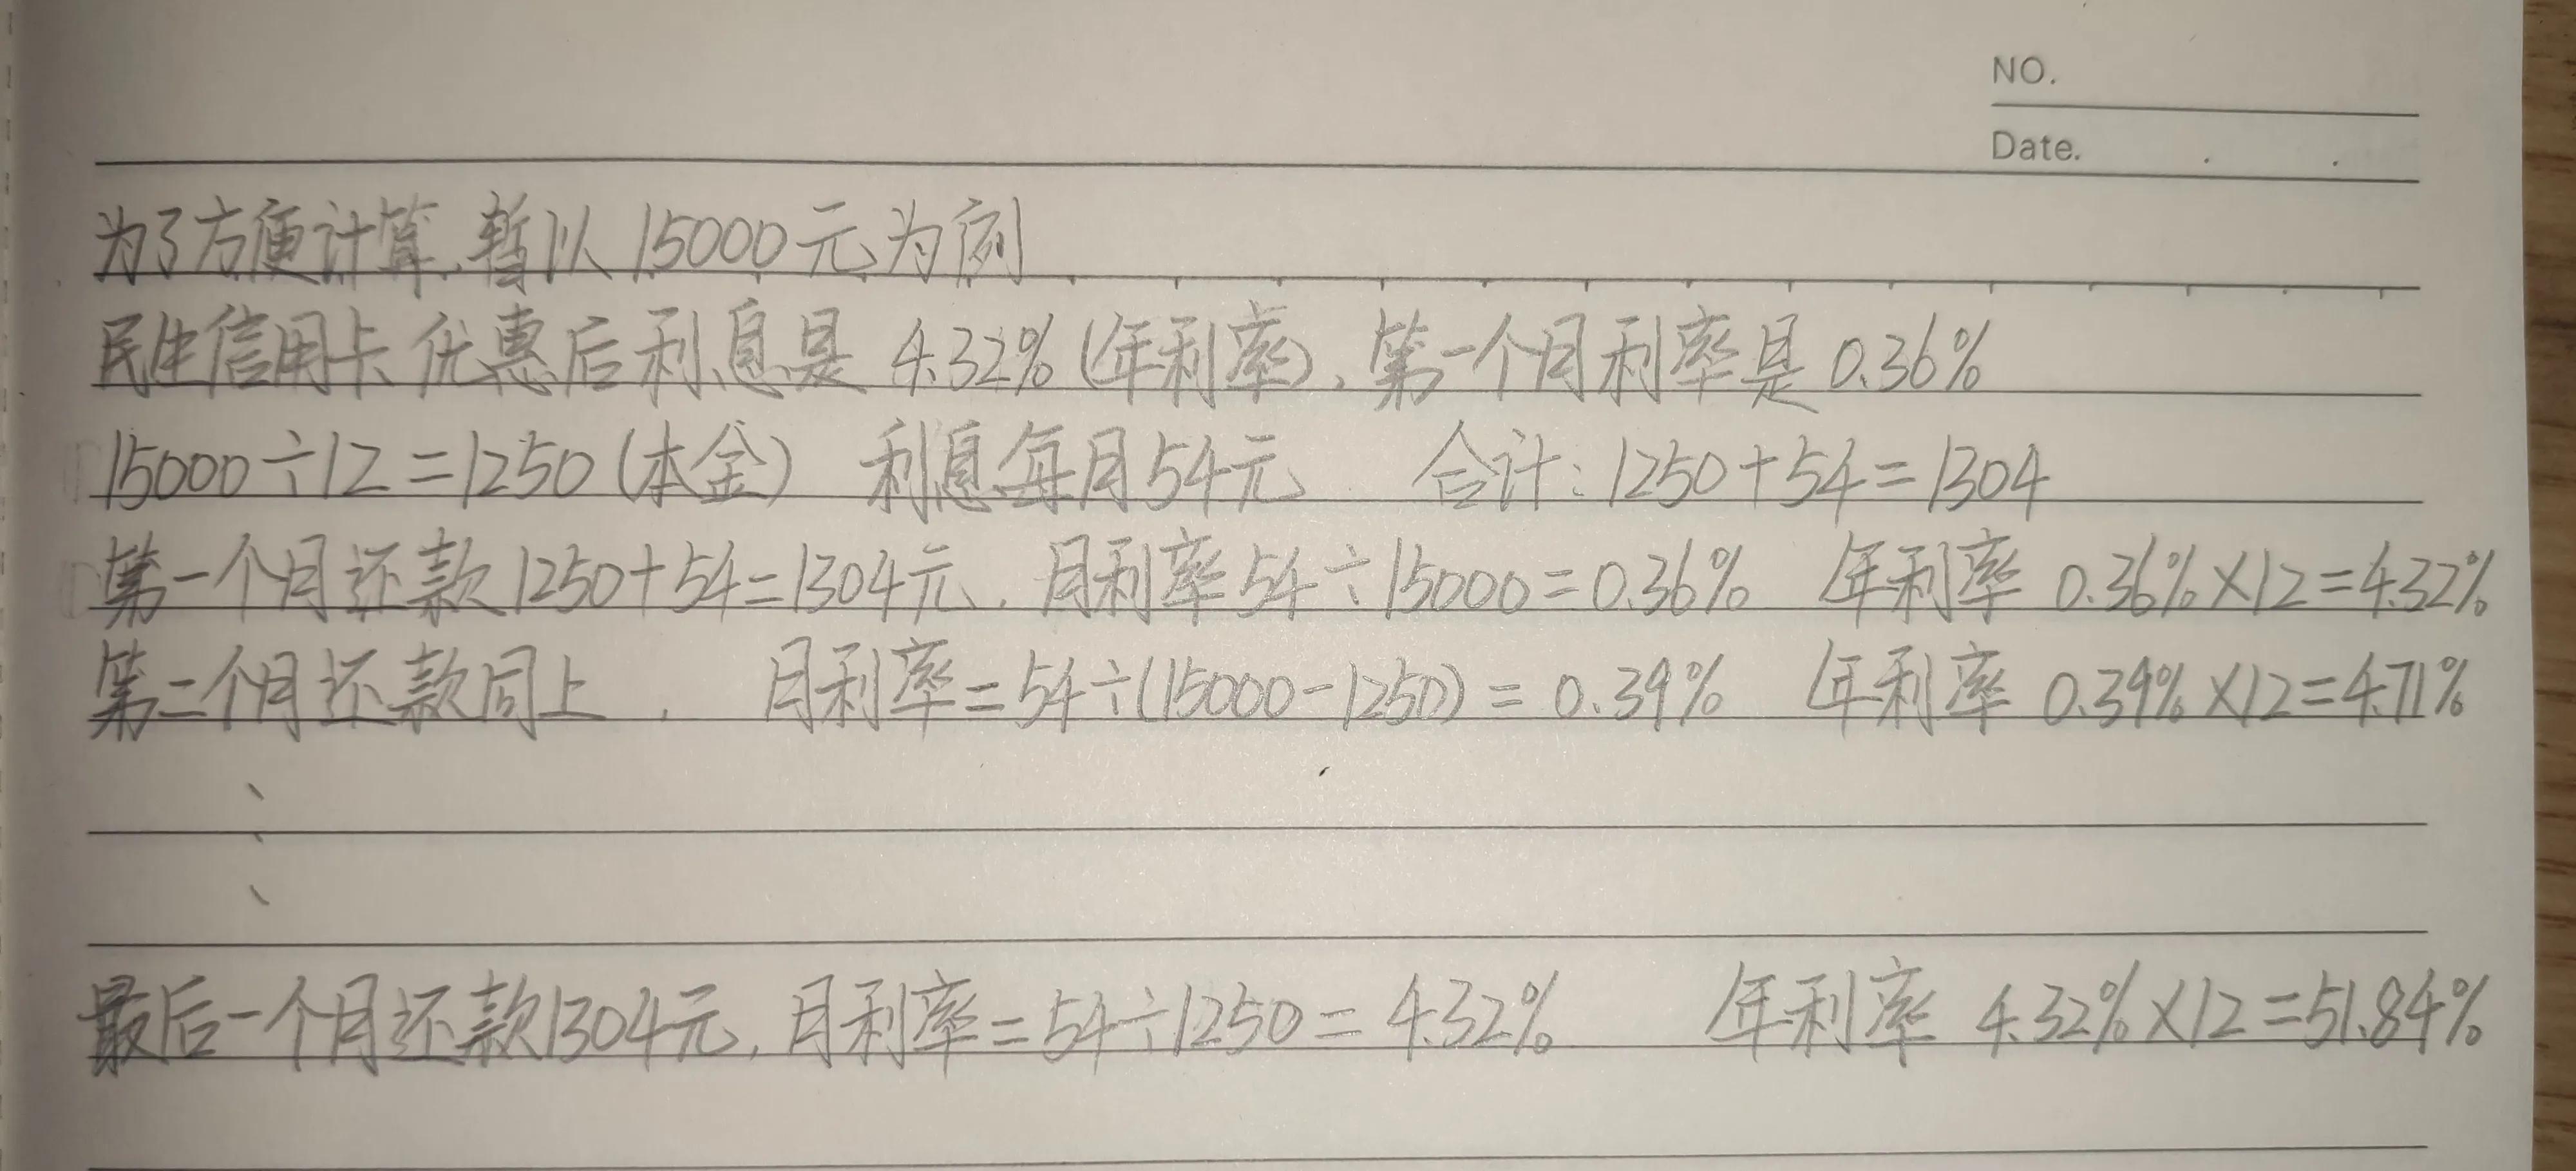 NO.
Date.
为了方便计算,暂以15000元为例
民生信用卡优惠后利息是 4.32%(年利率),第一个月利率是0.36%
15000÷12=1250(本金) 利息每月54元 合计:1250+54=1304
第一个月还款1250+54=1304元,月利率54÷15000=0.36% 年利率 0.36%×12=4.32%
第二个月还款同上, 月利率=54÷(15000-1250)=0.39% 年利率 0.39%×12=4.71%
、
、
、
最后一个月还款1304元,月利率=54÷1250=4.32% 年利率 4.32%×12=51.84%